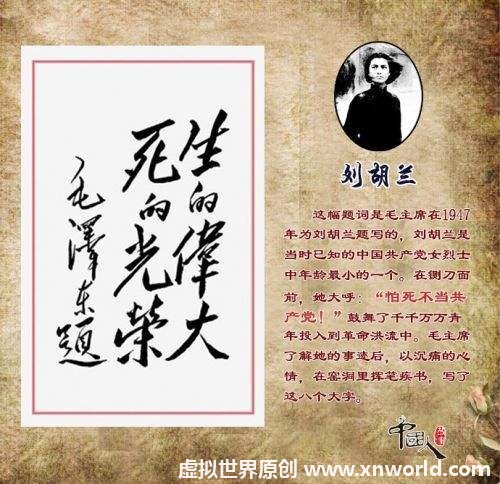 生的偉大
死的光榮
毛澤东題
刘胡兰
这幅题词是毛主席在1947
年为刘胡兰题写的，刘胡兰是
当时已知的中国共产党女烈士
中年龄最小的一个。在铡刀面
前，她大呼：“怕死不当共
产党！”鼓舞了千千万万青
年投入到革命洪流中。毛主席
了解她的事迹后，以沉痛的心
情，在窑洞里挥笔疾书，写了
这八个大字。
中國人
虚拟世界原创 www.xnworld.com